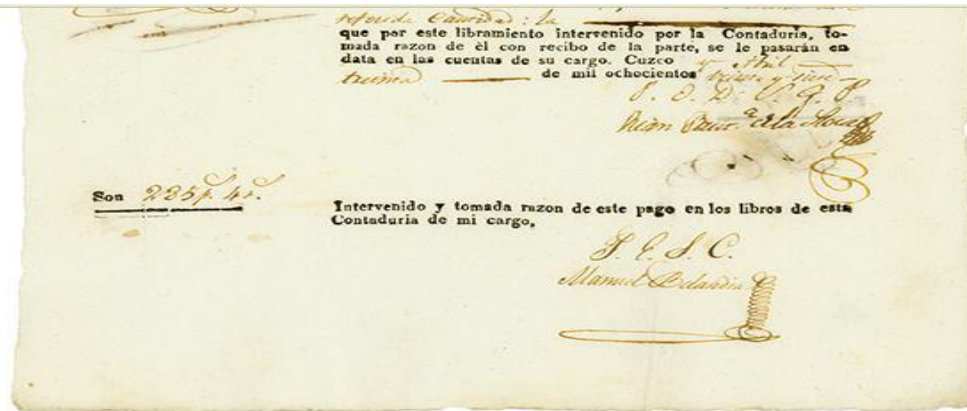 referida Cantidad: la
que por este libramiento intervenido por la Contaduria, to-
mada razon de èl con recibo de la parte, se le pasarán en
data en las cuentas de su cargo. Cuzco y Abril
treinta de mil ochocientos veinte y
P. O. D. V. G. P.
Son 285p. 4r.
Intervenido y tomada razon de este pago en los libros de esta
Contaduria de mi cargo,
Manuel Belandia